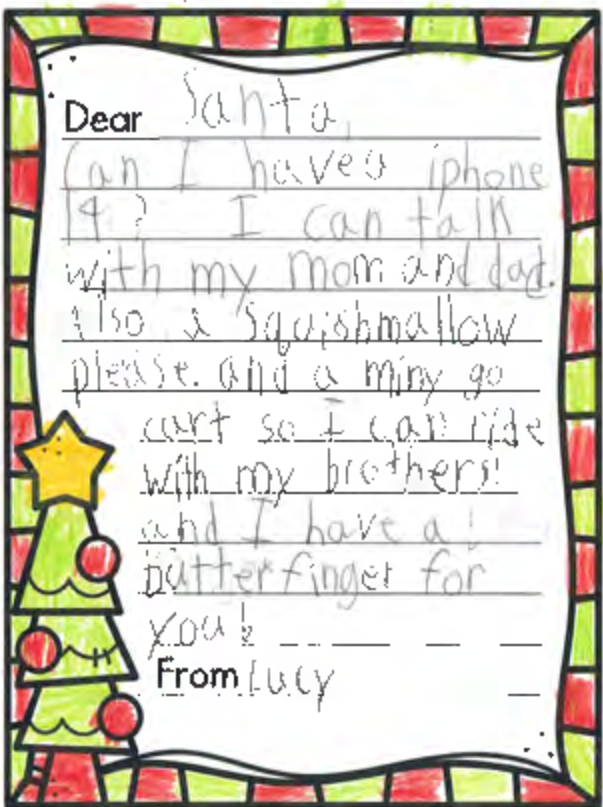 Dear Santa,
Can I have a iphone
14? I can talk
with my mom and dad.
Also a Squishmallow
please. and a miny go
cart so I can ride
with my brothers!
and I have a
Butterfinger for
you!
From Lucy